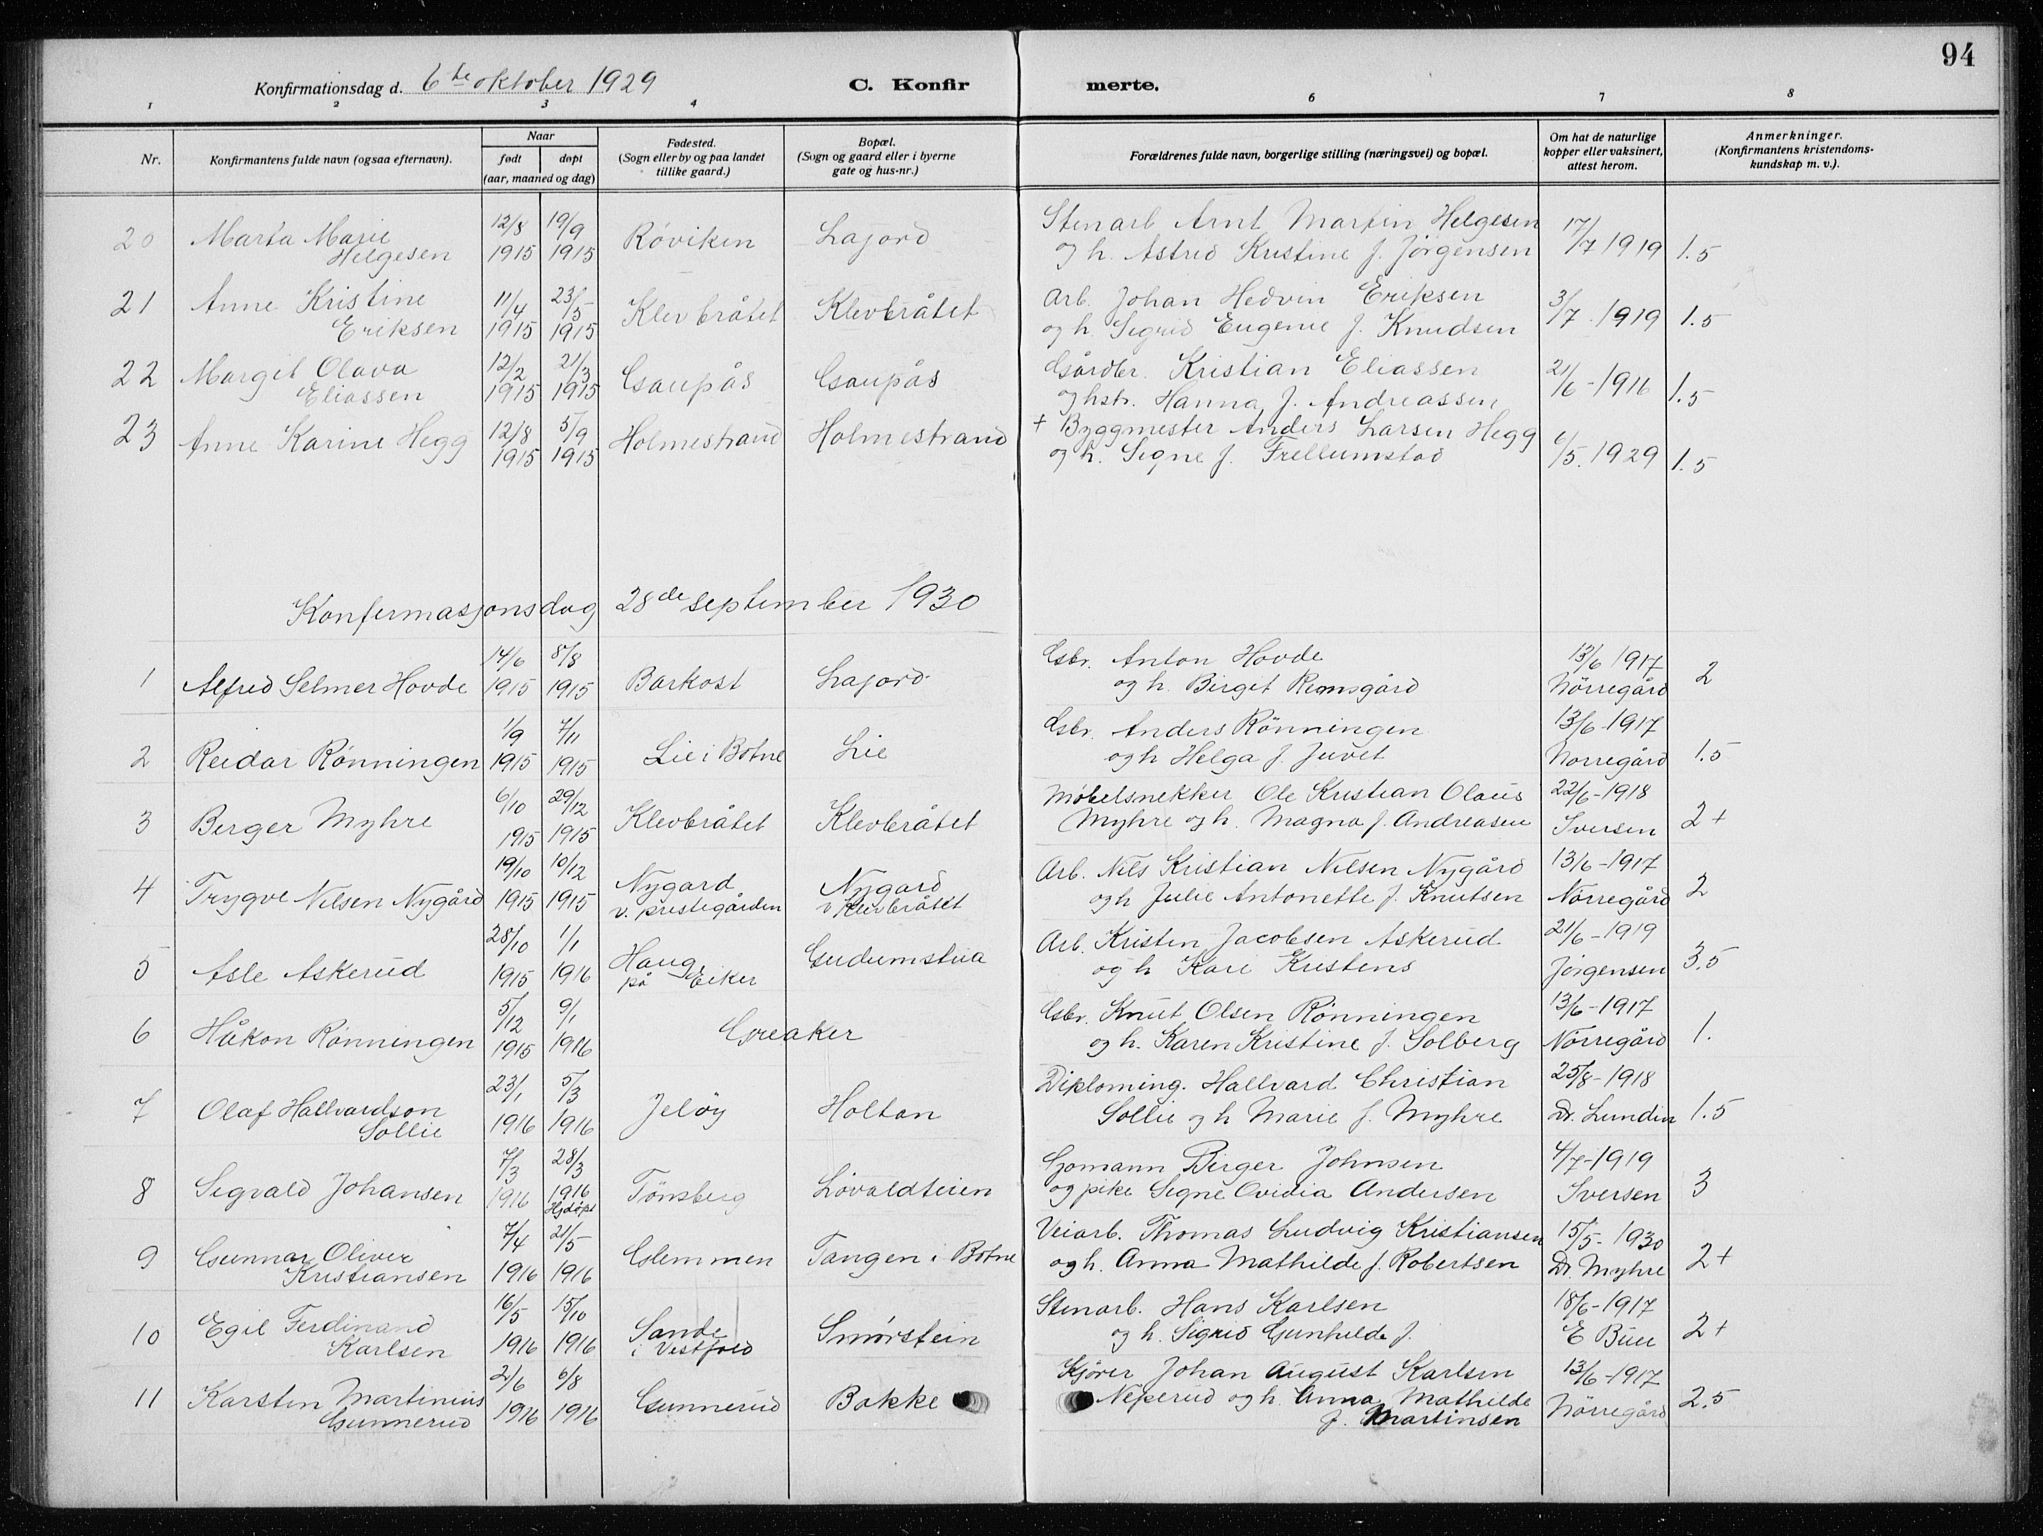 94
Konfirmationsdag d. 6te oktober 1929 C. Konfir merte.
1 2 3 4 6 7 8
Nr.
Konfirmantens fulde navn (ogsaa efternavn).
Naar
født døpt
(aar, maaned og dag)
Fødested.
(Sogn eller by og paa landet
tillike gaard.)
Bopæl.
(Sogn og gaard eller i byerne
gate og hus-nr.)
Forældrenes fulde navn, borgerlige stilling (næringsvei) og bopæl.
Om hat de naturlige
kopper eller vaksinert,
attest herom.
Anmerkninger.
(Konfirmantens kristendoms-
kundskap m. v.).
20 Marta Marie 12/8 19/9 Røviken Lajord Stenarb. Arnt Martin Helgesen 17/7 1919 1.5
Helgesen 1915 1915 og h. Astrid Kristine f. Jørgensen
21 Anne Kristine 11/4 23/5 Klevbråtet Klevbråtet Arb. Johan Hedvin Eriksen 3/7 1919 1.5
Eriksen 1915 1915 og h. Sigrid Eugenie f. Knudsen
22 Margit Olava 12/2 21/3 Gaupås Gaupås Gårdbr. Kristian Eliassen 21/6-1916 1.5
Eliassen 1915 1915 og hstr. Hanna f. Andreassen
23 Anne Karine Hegg 12/8 5/9 Holmestrand Holmestrand + Byggmester Anders Larsen Hegg 6/5. 1929 1.5
1915 1915 og h. Signe f. Frellumstad
Konfermasjonsdag 28de september 1930
1 Alfred Selmer Hovde 14/6 8/8 Barkost Lajord Gbr. Anton Hovde 13/6 1917 2
1915 1915 og h. Birget Remsgård Nørregård
2 Reidar Rønningen 1/9 7/11 Lie i Botne Lie Gbr. Anders Rønningen 13/6-1917 1.5
1915 1915 og h Helga f. Juvet Norregård
3 Berger Myhre 6/10 29/12 Klevbråtet Klevbråtet Møbelsnekker Ole Kristian Olaus 22/6-1918 2+
1915 1915 Myhre og h. Magna f. Andreasen Iversen
4 Trygve Nilsen Nygård 19/10 10/12 Nygard Nygard Arb. Nils Kristian Nilsen Nygård 13/6-1917 2
1915 1915 v. prestegården v Klevbråtet og h Julie Antonette f. Knutsen Nørregård
5 Asle Askerud 28/10 1/1 Haug Gudumstua Arb. Kristen Jacobsen Askerud 21/6-1919 3.5
1915 1916 på Eiker og h Kari Kristens Jørgensen
6 Håkon Rønningen 5/12 9/1 Greaker Gbr. Knut Olsen Rønningen 13/6-1917 1.
1915 1916 og h. Karen Kristine f. Solberg Nørregård
7 Olaf Hallvardson 23/1 5/3 Jeløy Holtan Diploming. Hallvard Christian 25/8-1918 1.5
Sollie 1916 1916 Sollie og h Marie f. Myhre Dr. Lundin
8 Sigvald Johansen 7/3 28/3 Tønsberg Løvaldteien Sjømann Birger Johnsen 4/7-1919 3
1916 1916 Hjdøpt og pike Signe Ovidia Andersen Iversen
9 Gunnar Oliver 7/4 21/5 Glemmen Tangen i Botne Veiarb. Thomas Ludvig Kristiansen 15/5-1930 2+
Kristiansen 1916 1916 og h. Anna Mathilde f. Robertsen Dr. Myhre
10 Egil Ferdinand 16/5 15/10 Sande Smørstein Stenarb. Hans Karlsen 18/6-1917 2+
Karlsen 1916 1916 i Vestfold og h. Sigrid Gunhilde f. E Bue
11 Karsten Martinius 2/6 6/8 Gunnerud Bakke Kjører Johan August Karlsen 13/6-1917 2.5
Gunnerud 1916 1916 Neperud og h. Anna Mathilde Nørregård
f. Martinsen